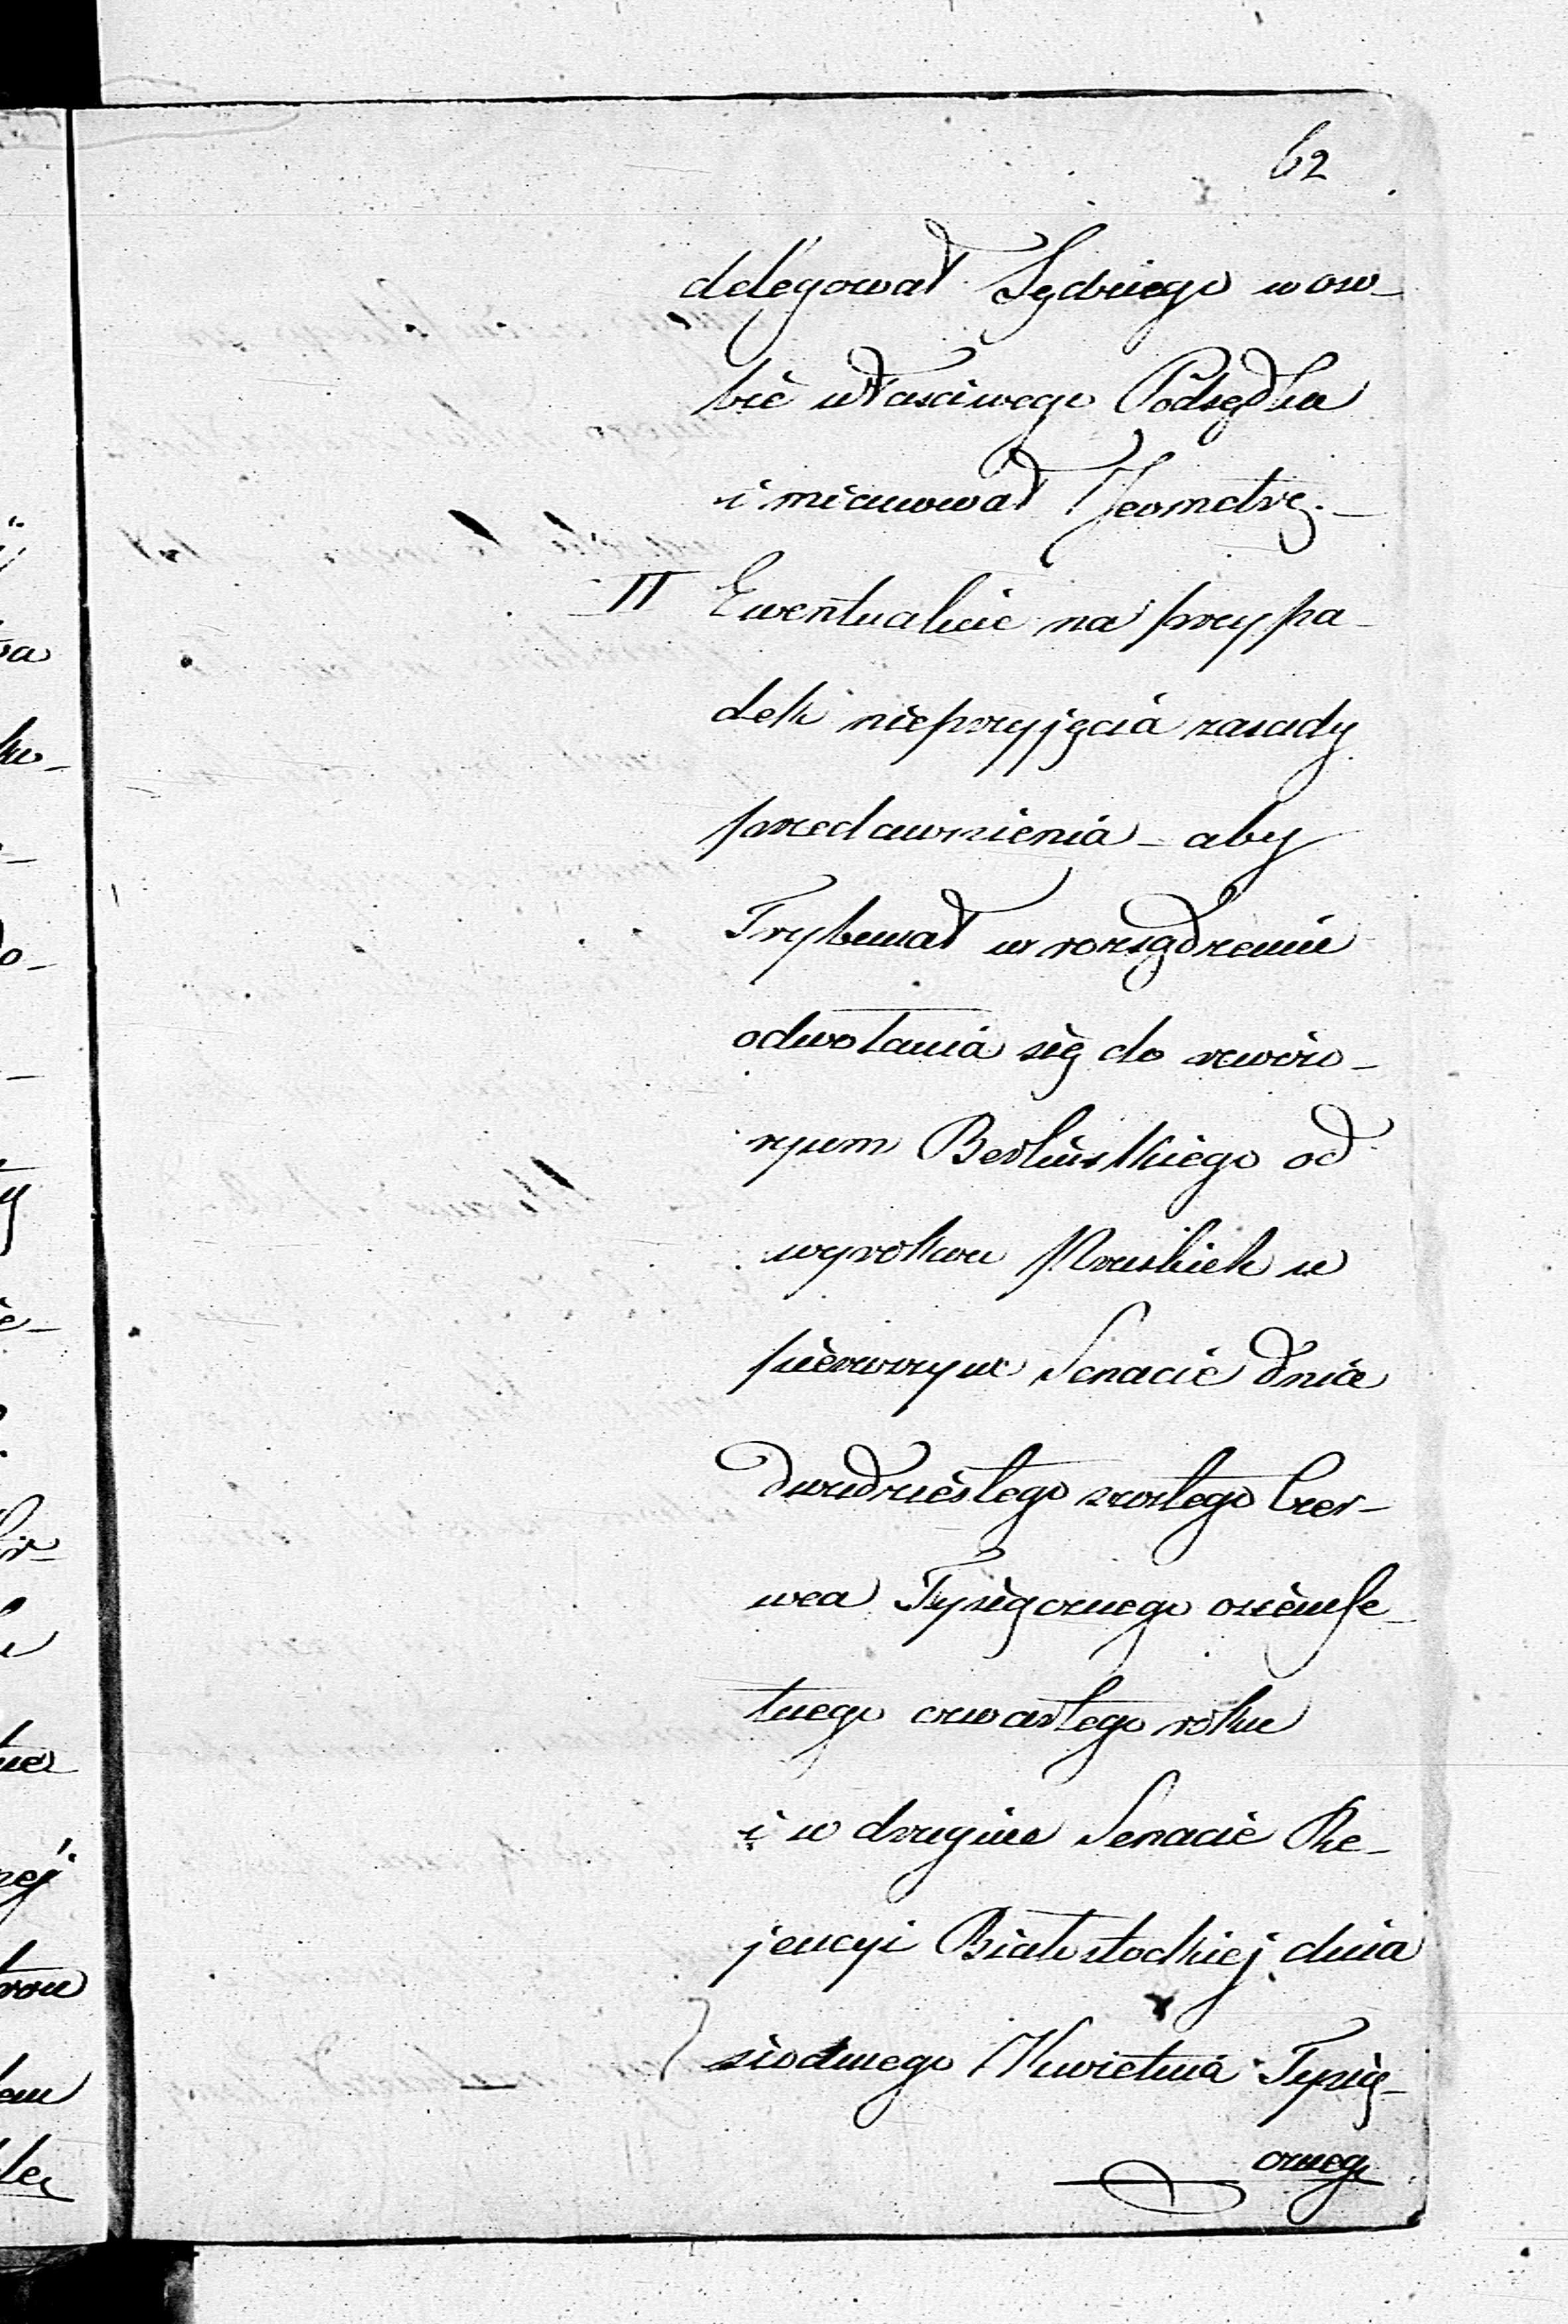 62
delegował Sędziego w oso-
bie właściwego Podsędka
i mianował Jeometrę.-
II Ewentualnie na przypa-
dek nieprzyjęcia zasady
przedawnienia - aby
Trybunał w rozsądzeniu
odwołania się do rewizo-
ryum Berlińskiego od
wyroków Pruskich w
pierwszym Senacie dnia
dwudziestego szóstego Czer-
wca Tysiącznego ośmse-
tnego czwartego roku
i w drugim Senacie Re-
jencyi Białostockiej dnia
siódmego Kwietnia Tysią-
cznego